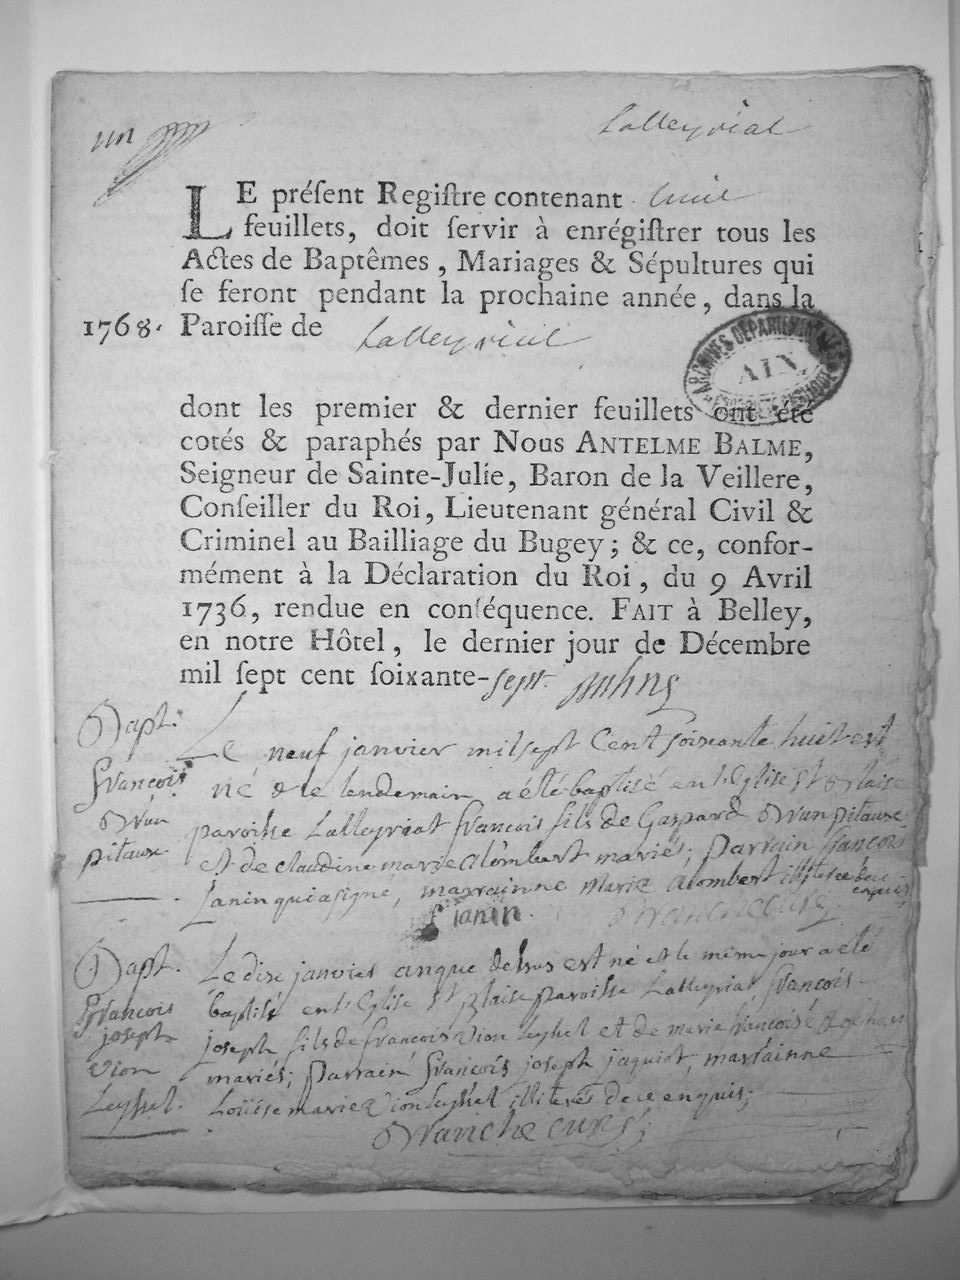 un
Lalleyriat
LE préſent Regiſtre contenant huit
feuillets, doit ſervir à enrégiſtrer tous les
Actes de Baptêmes, Mariages & Sépultures qui
ſe feront pendant la prochaine année, dans la
1768. Paroiſſe de Lalleyriat
ARCHIVES DÉPARTEMENTALES
AIN
dont les premier & dernier feuillets ont été
cotés & paraphés par Nous ANTELME BALME,
Seigneur de Sainte-Julie, Baron de la Veillere,
Conſeiller du Roi, Lieutenant général Civil &
Criminel au Bailliage du Bugey; & ce, confor-
mément à la Déclaration du Roi, du 9 Avril
1736, rendue en conſéquence. FAIT à Belley,
en notre Hôtel, le dernier jour de Décembre
mil ſept cent ſoixante-sept
Bapt.
François
Brun
pitaux
Le neuf janvier mil sept Cent soixante huit est
né et le lendemain a été baptisé en l'Eglise St Blaise
paroisse Lalleyriat françois fils de Gaspard Brun pitaux
et de claudine marie alombert mariés; parrain françois
Janin qui a signé, marrainne Marie alombert illiterée de ce
enquis
f Janin.
Bapt.
François
joseph
Vion
Leyssel.
Le dix janvier an que dessus est né et le même jour a été
baptisé en l'Eglise St Blaise paroisse Lalleyriat françois
joseph fils de françois Vion Leyssel et de marie françoise
mariés; parrain françois joseph jaquiot, marrainne
Loüise marie Vion Leyssel illiterés de ce enquis;